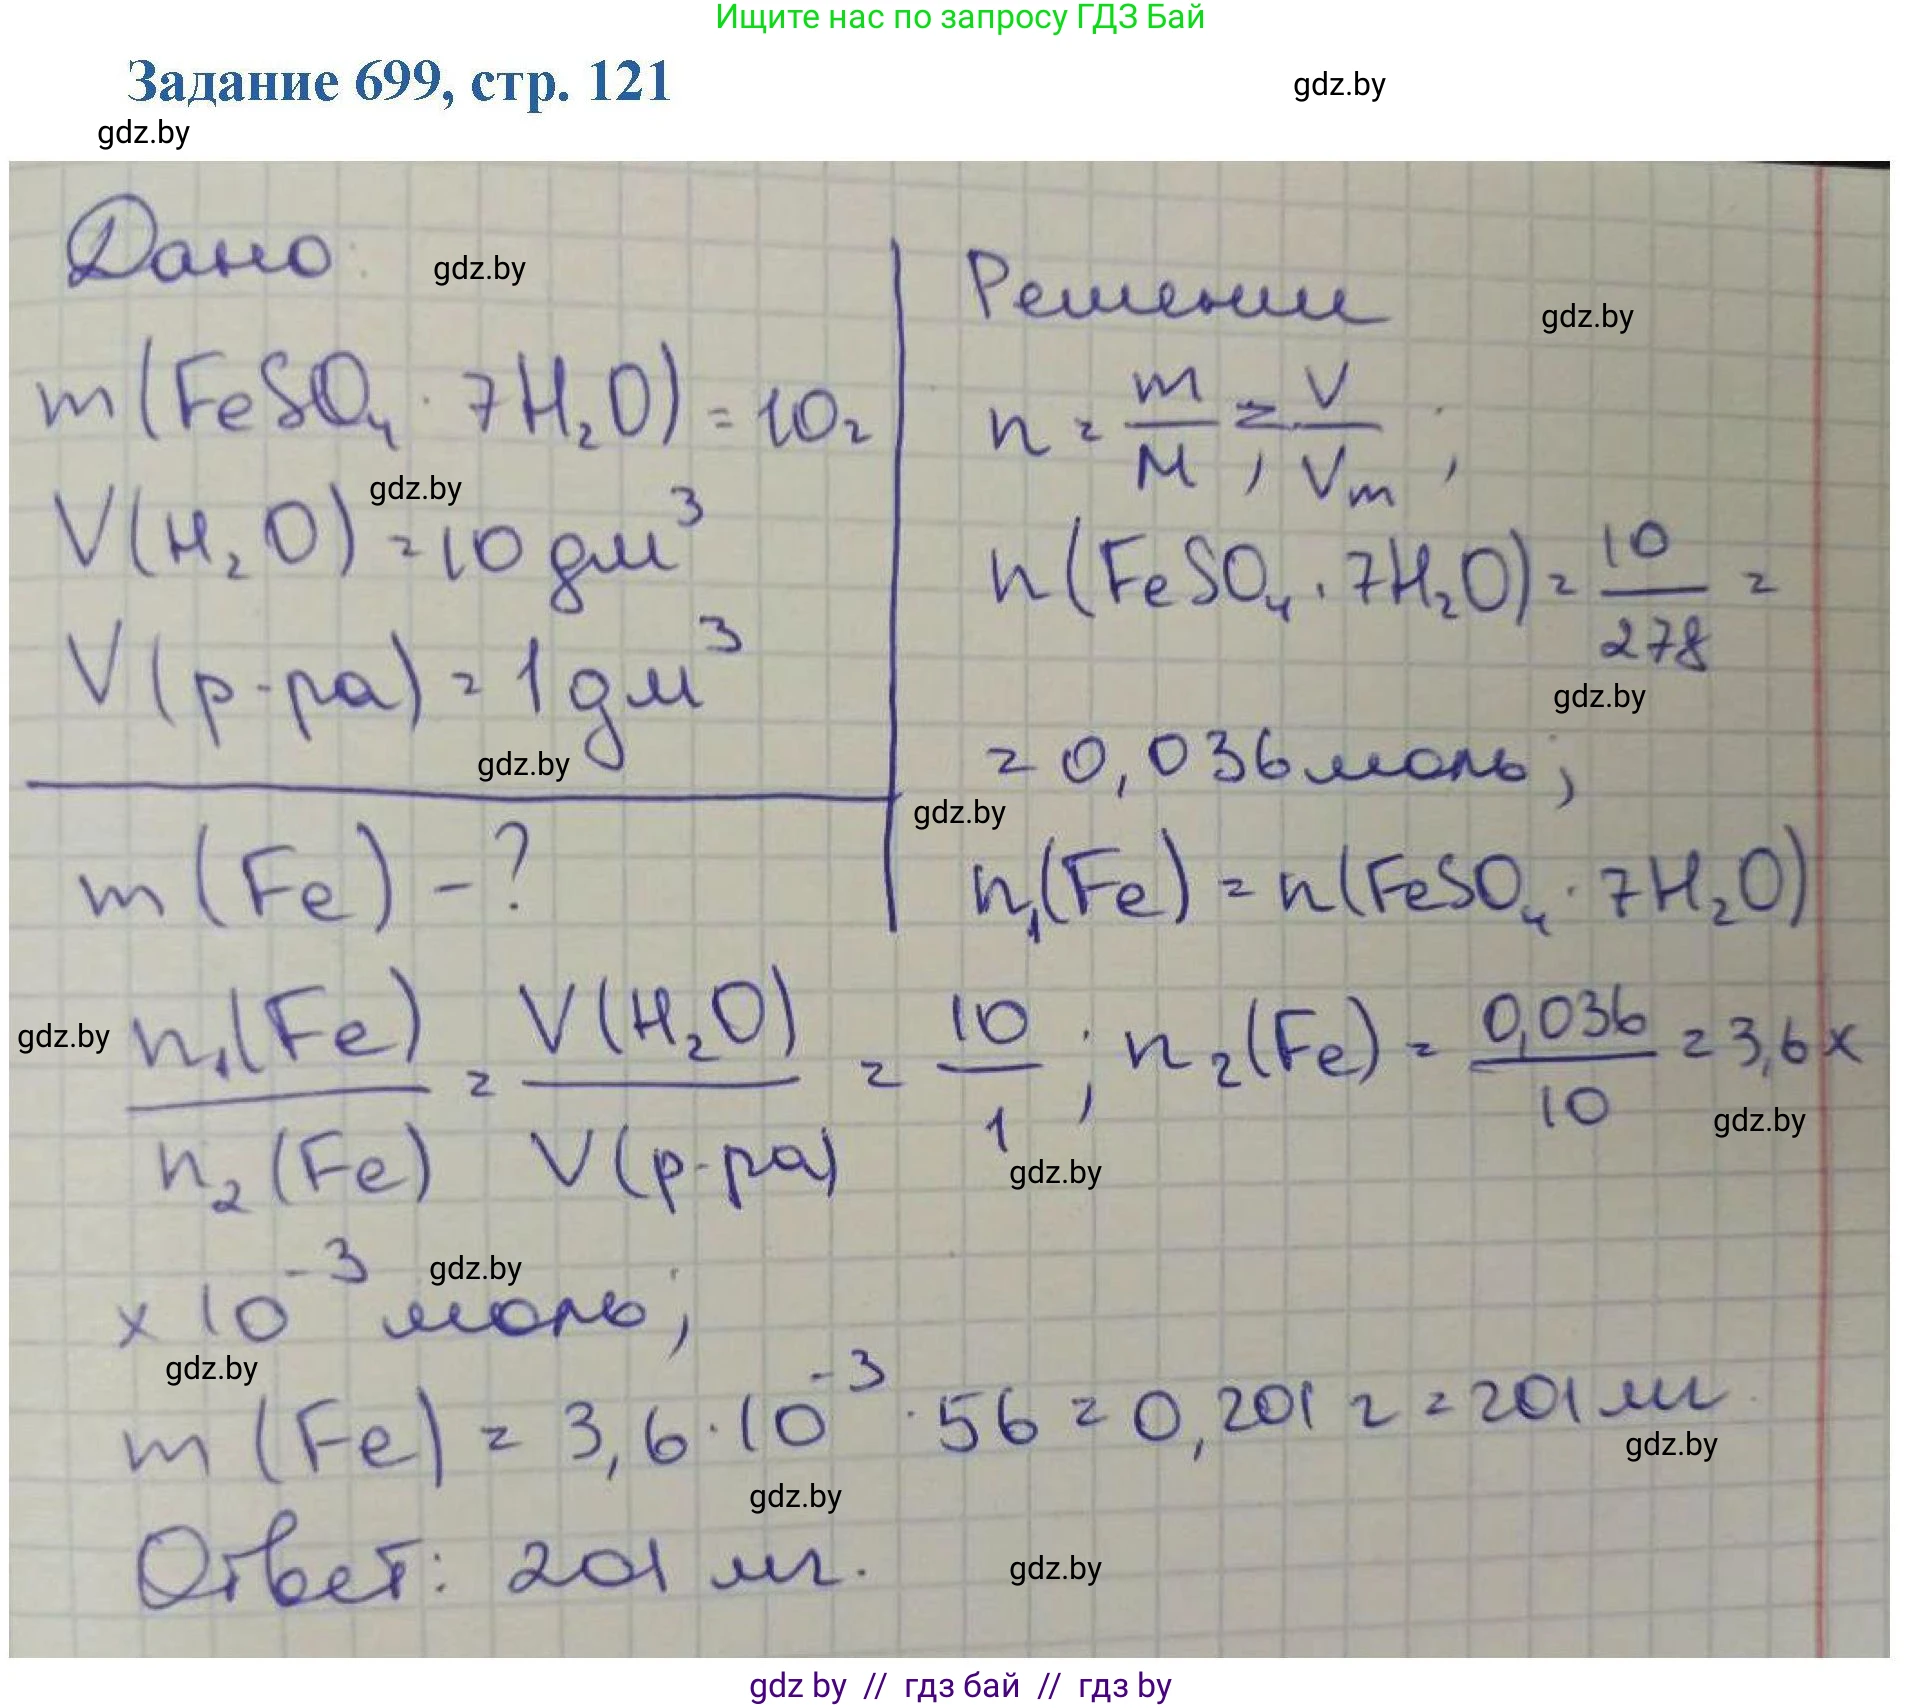 Ищите нас по запросу ГДЗ Бай
Задание 699, стр. 121
gdz.by
gdz.by
Дано:
gdz.by
m(FeSO₄ · 7H₂O) = 10г
gdz.by
V(H₂O) = 10 дм³
V(р-ра) = 1 дм³
gdz.by
m(Fe) - ?
Решение
gdz.by
n = m/M = V/Vm ;
n(FeSO₄ · 7H₂O) = 10/278 =
gdz.by
= 0,036 моль;
gdz.by
n₁(Fe) = n(FeSO₄ · 7H₂O)
gdz.by
n₁(Fe)/n₂(Fe) = V(H₂O)/V(р-ра) = 10/1 ; n₂(Fe) = 0,036/10 = 3,6 x
gdz.by
gdz.by
gdz.by
x 10⁻³ моль;
gdz.by
m(Fe) = 3,6 · 10⁻³ · 56 = 0,201 г = 201 мг.
gdz.by
gdz.by
Ответ: 201 мг.
gdz.by
gdz by // гдз бай // гдз by